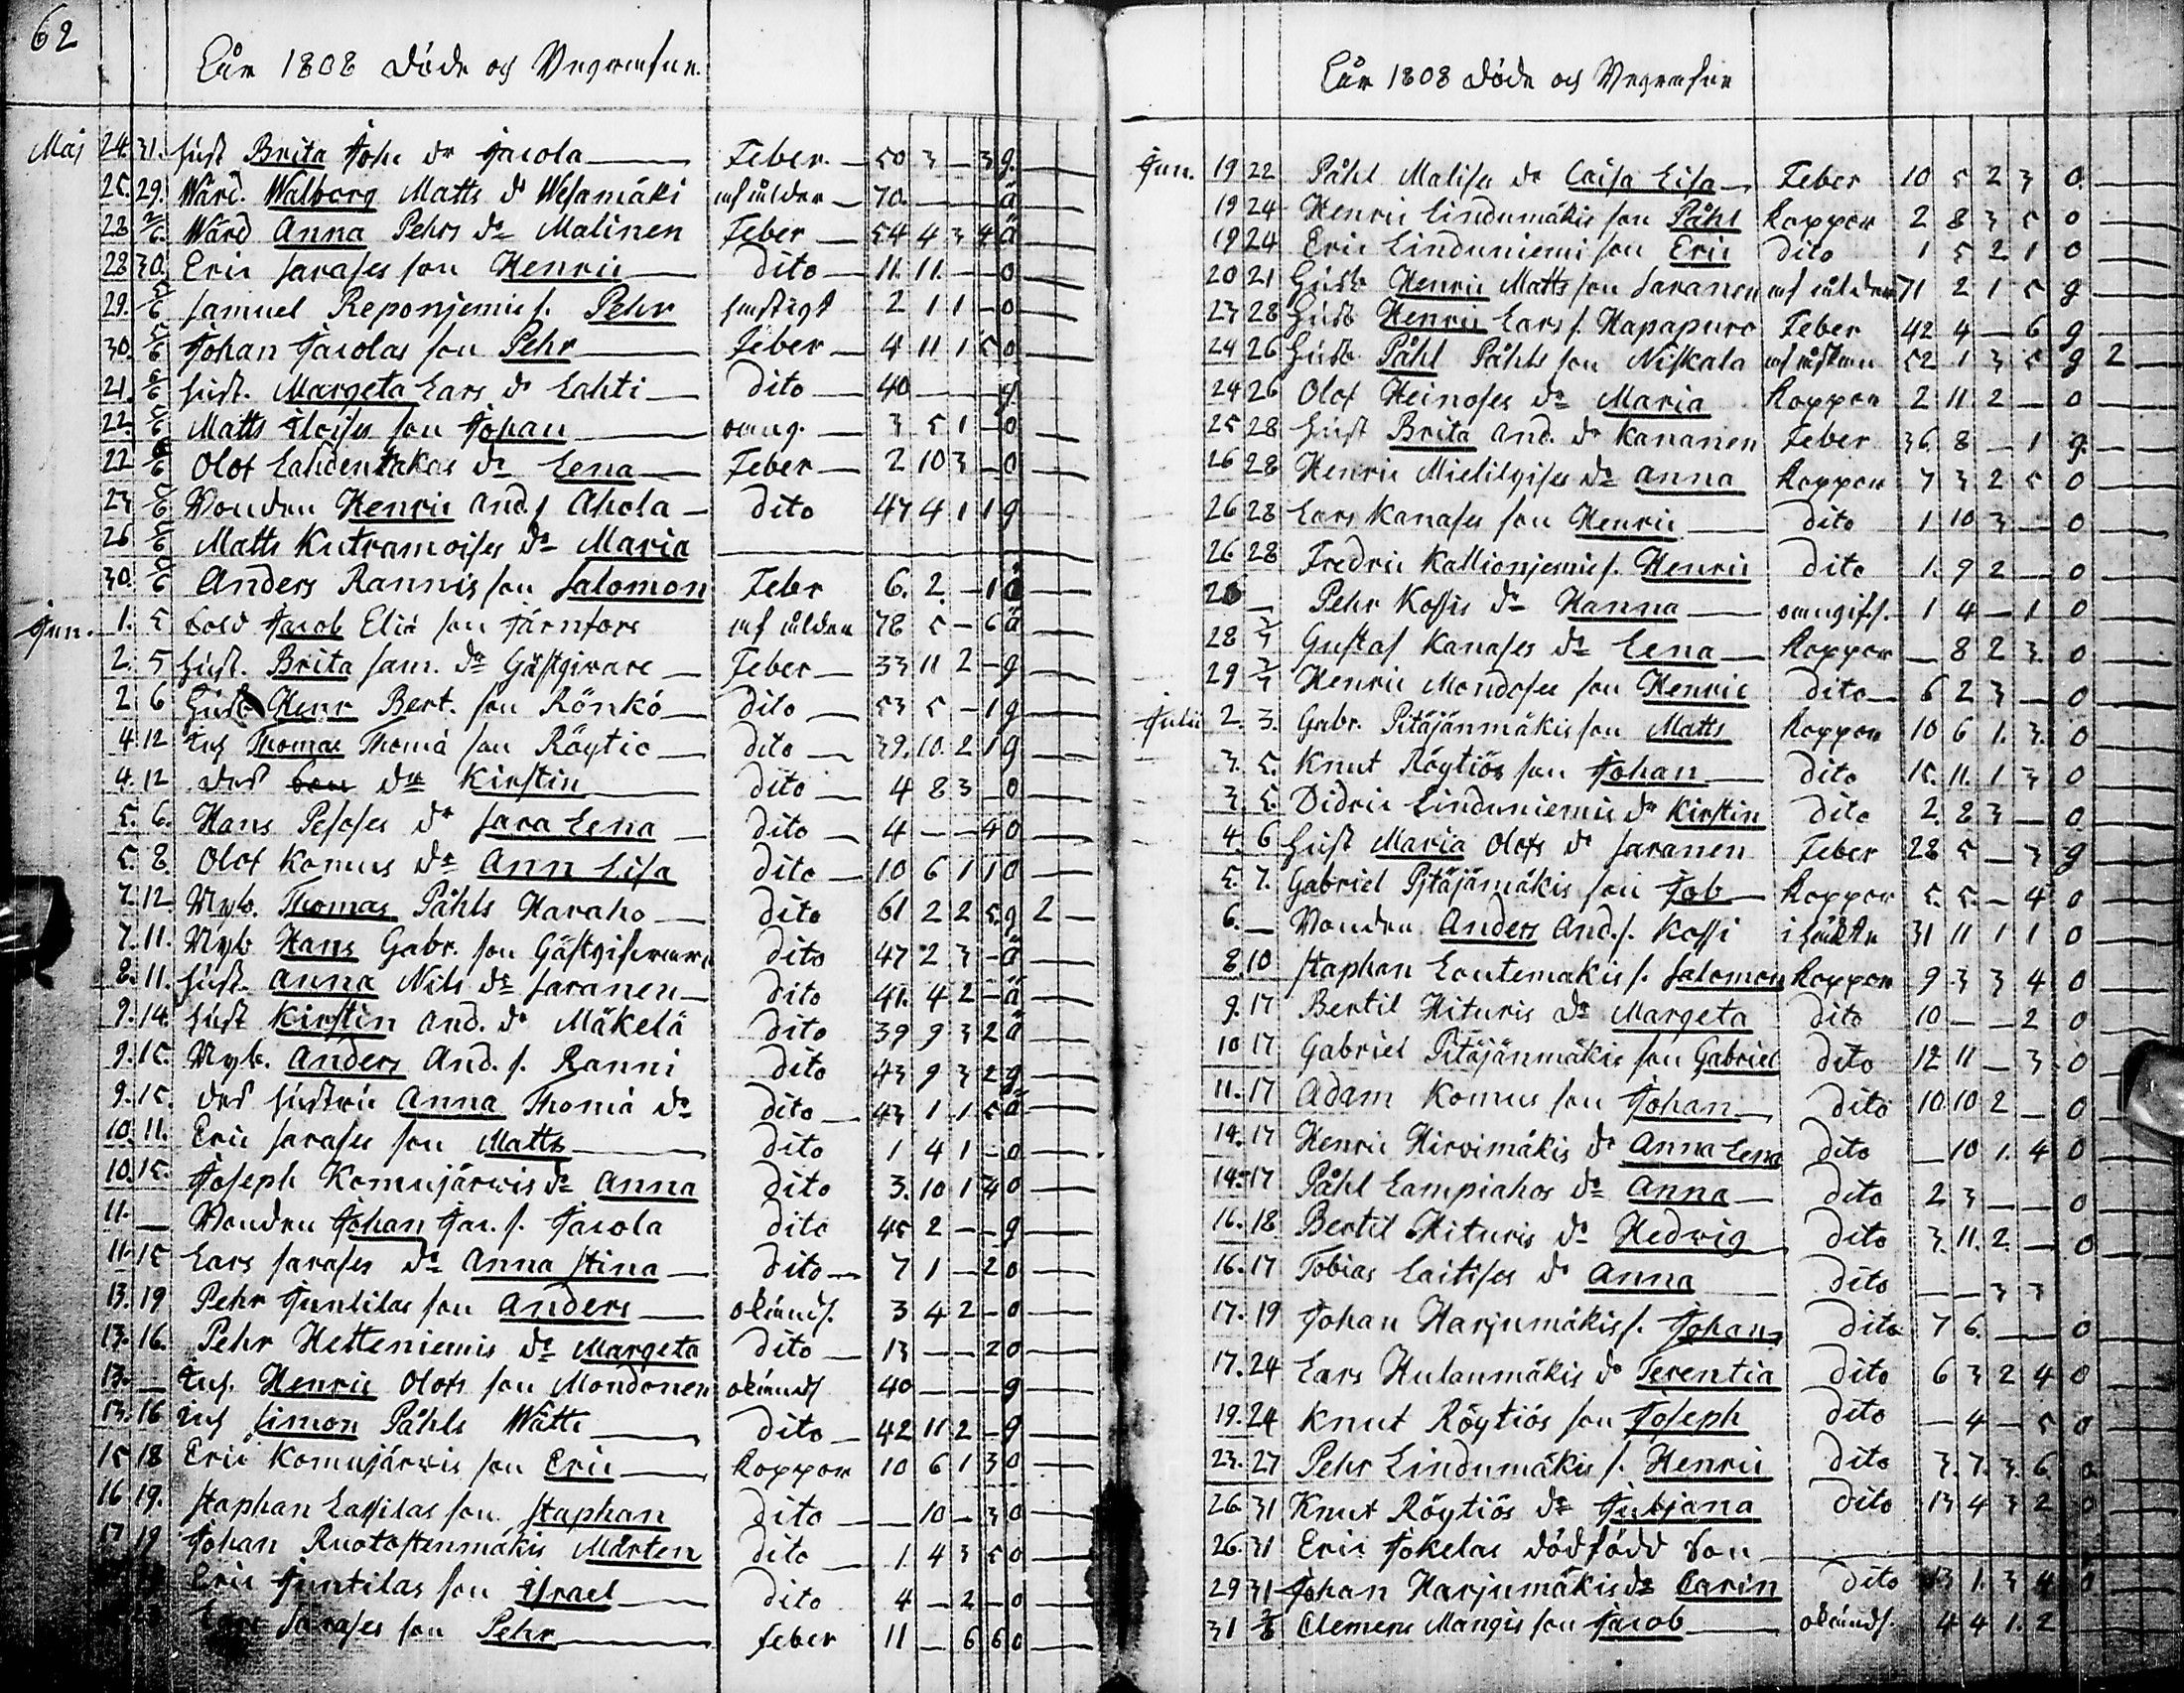 62
Åår 1808 Döde och Begrafne.
Maj 24. 31. Hust. Brita Joh: dr Jacola Feber. 50 3 — 3 g.
25. 29. Wärd. Walborg Matts dr Wesamäki af ålder 70. — — — ä
28 2/6. Wärd Anna Pehrs dr Malinen Feber 54 4 3 4 ä
28 30. Eric Sarases son Henric dito 11. 11. — — o
29. 5/6 Samuel Reponjemis s. Pehr hastigt 2 1 1 — o
30. 5/6 Johan Jacolas son Pehr Feber 4 11 1 5 o
21. 5/6 Hust. Margeta Lars dr Lahti dito 40 — — — g
22. 5/6 Matts son Johan 3 5 1 — o
22 5/6 Olof Lahdentakas dr Lena Feber 2 10 3 — o
23 5/6 Bonden Henric And. s Ahola dito 47 4 1 1 g
26 5/6 Matts Kutramoises dr Maria
30. 5/6 Anders Rannis son Salomon Feber 6. 2. — 1 o
Jun. 1. 5 Sold Jacob Eliæ son Järnfors af ålder 78 5 — 6 ä
2. 5 Hust. Brita Sam. dr Gästgivare Feber 33 11 2 — g
2 6 Husb Henr Bert. son Rönkö dito 53 5 — 1 g
4. 12 Inh Thomas Thomæ son Röytio dito 39. 10. 2 1 g
4. 12 des dr Kirstin dito 4 8 3 — o
5. 6. Hans Pesoses dr Sara Lena dito 4 — — 4 o
5. 8. Olof Komus dr Ann Lisa dito 10 6 1 1 o
7. 12. Nyb. Thomas Påhls Haraho dito 61 2 2 5 g 2
7. 11. Nyb Hans Gabr. son Gästgifvare dito 47 2 3 — ä
8. 11. Hust. Anna Nils dr Saranen dito 41. 4 2 — ä
9. 14. Hust Kirstin And. dr Mäkelä dito 39 9 3 2 ä
9. 15. Nyb. Anders And. s. Ranni dito 43 9 3 2 g
9. 15. des hustru Anna Thomæ dr dito 43 1 1 5 ä
10. 11. Eric Sarases son Matts dito 1 4 1 — o
10. 15. Joseph Komujärwis dr Anna dito 3. 10 1 4 o
11. — Bonden Johan Jac. s. Jacola dito 45 2 — — g
11. 15 Lars Sarases dr Anna Stina dito 7 1 — 2 o
13. 19 Pehr Juntilas son Anders okänds. 3 4 2 — o
13. 16. Pehr Hetteniemis dr Margeta dito 13 — — 2 o
13. — Inh. Henric Olofs son Mondonen okänds 40 — — — g
13. 16 Inh Simon Påhls Wätti dito 42 11 2 — g
15 18 Eric Komujärwis son Eric Koppor 10 6 1 3 o
16 19. Staphan Lassilas son Staphan dito — 10 — 3 o
17 19 Johan Ruotostenmäkis Mårten dito 1. 4 3 5 o
Eric Juntilas son Israel dito 4 — 2 — o
Lars Sarases son Pehr Feber 11 — 6 6 o
Åår 1808 Döde och Begrafne
Jun. 19 22 Påhl Malises dr Caisa Lisa Feber 10 5 2 3 o.
19 24 Henric Lindumäkis son Påhl Koppor 2 8 3 5 o
19 24 Eric Linduniemi son Eric dito 1 5 2 1 o
20 21 Husb Henric Matts son Saranen af ålder 71 2 1 5 g
23 28 Husb Henric Lars s. Hapapuro Feber 42 4 — 6 g
24 26 Husb. Påhl Påhls son Niskala 52 1 3 5 g 2
24 26 Olof Heinoses dr Maria Koppor 2 11. 2 — o
25 28 Hust Brita And. dr Kananen Feber 36 8 — 1 g.
26 28 Henric Mielilyises dr Anna Koppor 7 3 2 5 o
26 28 Lars Kanases son Henric dito 1 10 3 — o
26 28 Fredric Kallionjemis s. Henric dito 1. 9 2 — o
26 — Pehr Kossis dr Hanna oangifs. 1 4 — 1 o
28 3/7 Gustaf Kanases dr Lena Koppor — 8 2 3. o
29 3/7 Henric Mondoses son Henric dito 6 2 3 — o
Julii 2. 3. Gabr. Pitäjänmäkis son Matts Koppor 10 6 1. 3. o
3. 5. Knut Röytiös son Johan dito 15. 11. 1 3 o
3 5. Didric Linduniemis dr Kirstin dito 2. 8 3 — o
4. 6 Hust Maria Olofs dr Saranen Feber 28 5 — 3 g
5. 7. Gabriel Pitäjämäkis son Job Koppor 5. 5. — 4 o
6. — Bonden Anders And. s. Kossi 31 11 1 1 o
8. 10 Staphan Loutemakis s. Salomon Koppor 9 3 3 4 o
9. 17 Bertil Hituris dr Margeta dito 10 — — 2 o
10 17 Gabriel Pitäjänmäkis son Gabriel dito 12 11 — 3 o
11. 17 Adam Komus son Johan dito 10 10 2 — o
14. 17 Henric Hirvimäkis dr Anna Lena dito — 10 1. 4 o
14. 17 Påhl Lampiahos dr Anna dito 2 3 — — o
16. 18. Bertil Hituris dr Hedwig dito 3. 11. 2. — o
16. 17 Tobias Laitises dr Anna dito — — 3 3
17. 19 Johan Harjumäkis s. Johan dito 7 6. — — o
17. 24 Lars Hulanmäkis dr Terentia dito 6 3 2 4 o
19. 24 Knut Röytiös son Joseph dito — 4 — 5 o
23. 27 Pehr Lindumäkis s. Henric dito 3. 7. 3. 6. o.
26. 31 Knut Röytiös dr Juljana dito 13 4 3 2 o
26. 31 Eric Jokelas dödfödd son
29 31 Johan Harjumäkis dr Carin dito 13 1. 3 4 o
31 2/8 Clemens Mangis son Jacob okänds. 4 4 1. 2